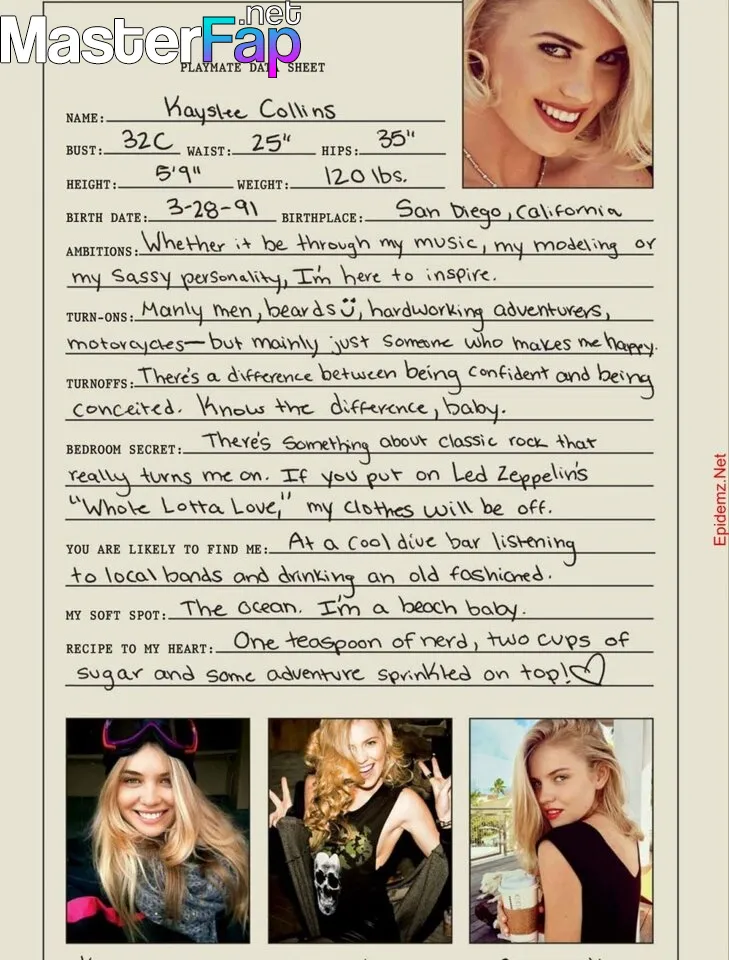 MasterFap
.net
PLAYMATE DATA SHEET
NAME: Kayslee Collins
BUST: 32C WAIST: 25" HIPS: 35"
HEIGHT: 5'9" WEIGHT: 120 lbs.
BIRTH DATE: 3-28-91 BIRTHPLACE: San Diego, California
AMBITIONS: Whether it be through my music, my modeling or
my sassy personality, I'm here to inspire.
TURN-ONS: Manly men, beards, hardworking adventurers,
motorcycles—but mainly just someone who makes me happy.
TURNOFFS: There's a difference between being confident and being
conceited. Know the difference, baby.
BEDROOM SECRET: There's something about classic rock that
really turns me on. If you put on Led Zeppelin's
"Whole Lotta Love," my clothes will be off.
YOU ARE LIKELY TO FIND ME: At a cool dive bar listening
to local bands and drinking an old fashioned.
MY SOFT SPOT: The ocean. I'm a beach baby.
RECIPE TO MY HEART: One teaspoon of nerd, two cups of
sugar and some adventure sprinkled on top!
Epidemz.Net